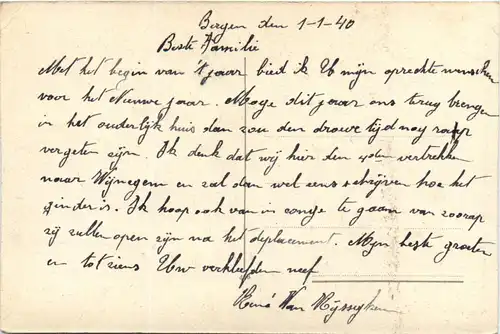 Bergen den 1-1-40
Beste Familie
Met het begin van 't jaar bied ik U mijn oprechte wenschen
voor het Nieuwe jaar. Moge dit jaar ons terug brengen
in het ouderlijk huis dan zou den droeve tijd nog rap
vergeten zijn. Ik denk dat wij hier den 4den vertrekken
naar Wijnegem en zal dan wel eens schrijven hoe het
ginder is. Ik hoop ook van in conge te gaan van zoorap
zij zullen open zijn na het deplacement. Mijn beste groeten
en tot ziens Uw verkleefden neef
René Van